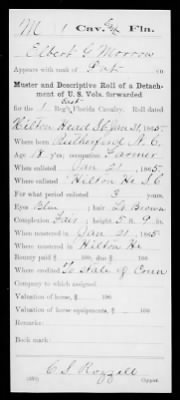 M 1 Cav. Fla.
Elbert G Morrow
Appears with rank of Pvt on
Muster and Descriptive Roll of a Detach-
ment of U. S. Vols. forwarded
East
for the 1 Reg't Florida Cavalry. Roll dated
Hilton Head S C Jan 31, 1865.
Where born Rutherford N. C.
Age 18 y'rs; occupation Farmer
When enlisted Jan 21, 1865
Where enlisted Hilton He S C
For what period enlisted 3 years.
Eyes Blue; hair Lt Brown
Complexion Fair; height 5 ft. 9 in.
When mustered in Jan 21, 1865
Where mustered in Hilton He
Bounty paid $ 100; due $ 100
Where credited To State of Conn
Company to which assigned
Valuation of horse, $ 100
Valuation of horse equipments, $ 100
Remarks:
Book mark:
C S Rozzell
Copyist.